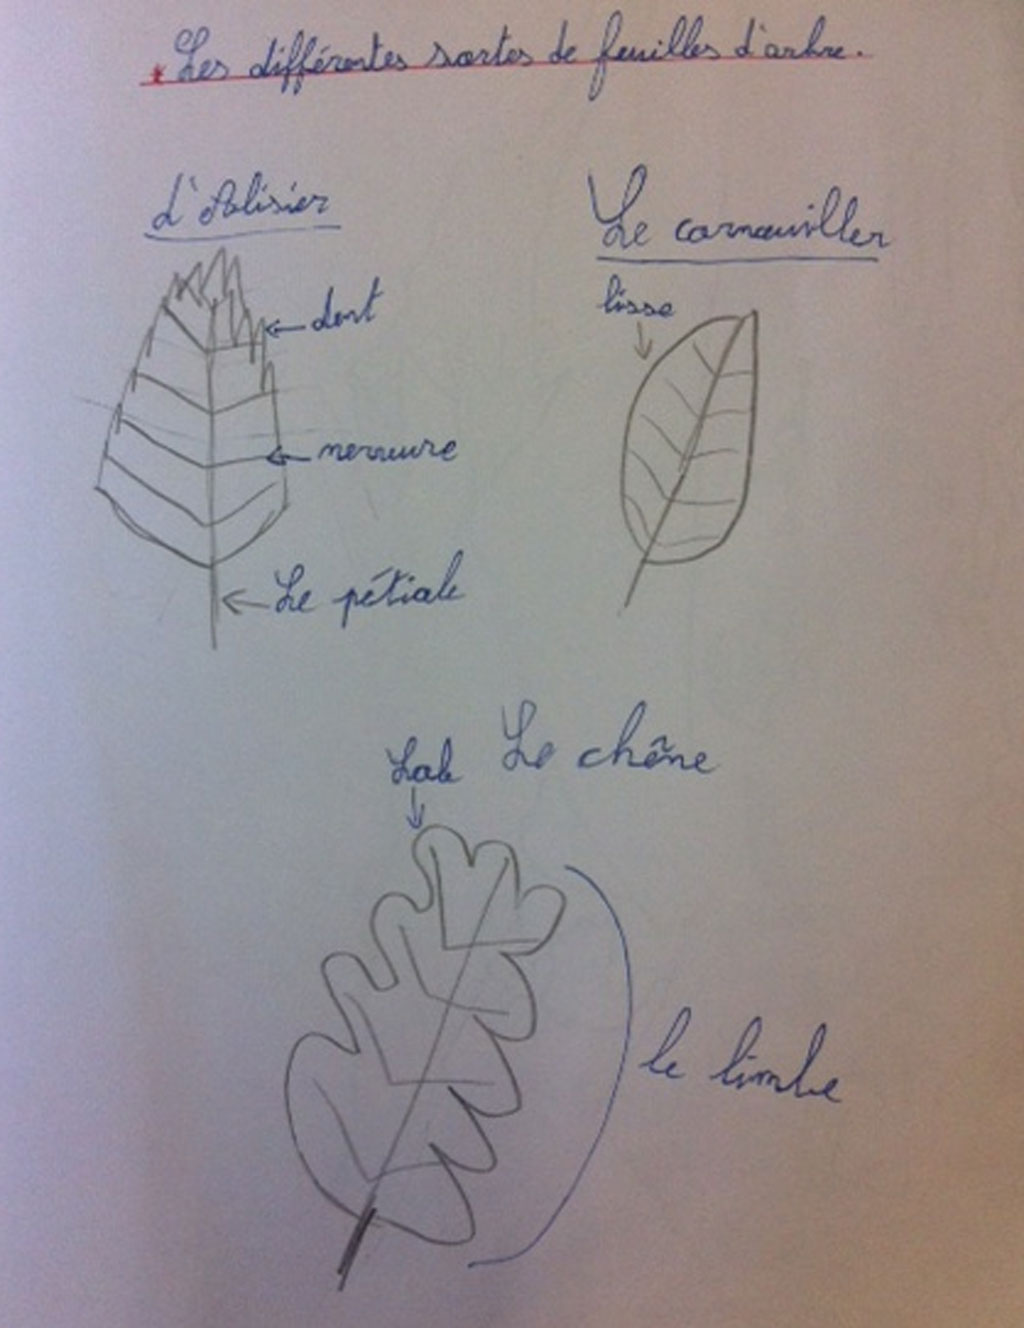 * Les différentes sortes de feuilles d'arbre.
L'Alisier
Le cornouiller
lisse
dent
nervure
Le pétiole
Lobe
Le chêne
le limbe